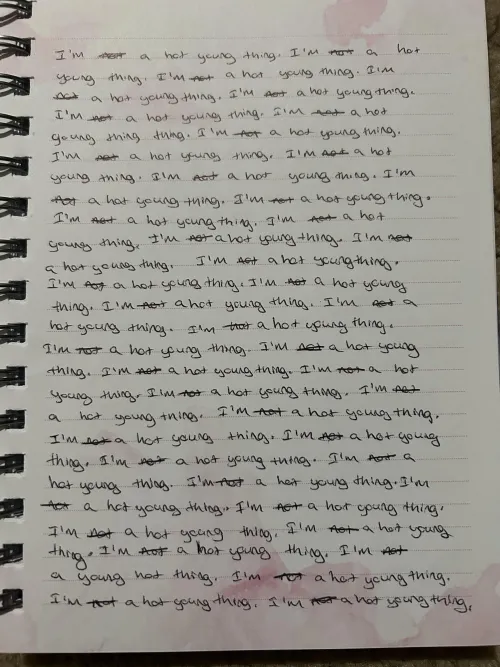 I'm not a hot young thing. I'm not a hot
young thing. I'm not a hot young thing. I'm
not a hot young thing. I'm not a hot young thing.
I'm not a hot young thing. I'm not a hot
young thing thing. I'm not a hot young thing.
I'm not a hot young thing. I'm not a hot
young thing. I'm not a hot young thing. I'm
not a hot young thing. I'm not a hot young thing.
I'm not a hot young thing. I'm not a hot
young thing. I'm not a hot young thing. I'm not
a hot young thing. I'm not a hot young thing.
I'm not a hot young thing. I'm not a hot young
thing. I'm not a hot young thing. I'm not a
hot young thing. I'm not a hot young thing.
I'm not a hot young thing. I'm not a hot young
thing. I'm not a hot young thing. I'm not a hot
young thing. I'm not a hot young thing. I'm not
a hot young thing. I'm not a hot young thing.
I'm not a hot young thing. I'm not a hot young
thing. I'm not a hot young thing. I'm not a
hot young thing. I'm not a hot young thing. I'm
not a hot young thing. I'm not a hot young thing.
I'm not a hot young thing. I'm not a hot young
thing. I'm not a hot young thing. I'm not
a young hot thing. I'm not a hot young thing.
I'm not a hot young thing. I'm not a hot young thing.